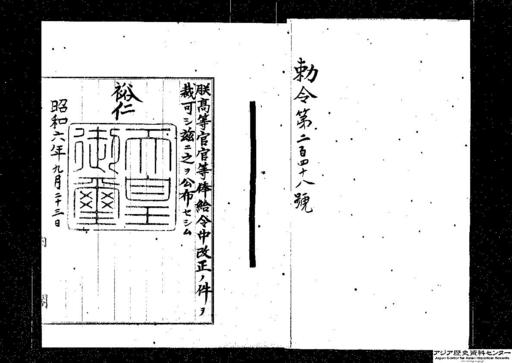 勅令第二百四十八號
朕高等官官等俸給令中改正ノ件ヲ
裁可シ茲ニ之ヲ公布セシム
裕仁
天皇御璽
昭和六年九月二十三日
内閣
アジア歴史資料センター
Japan Center for Asian Historical Records